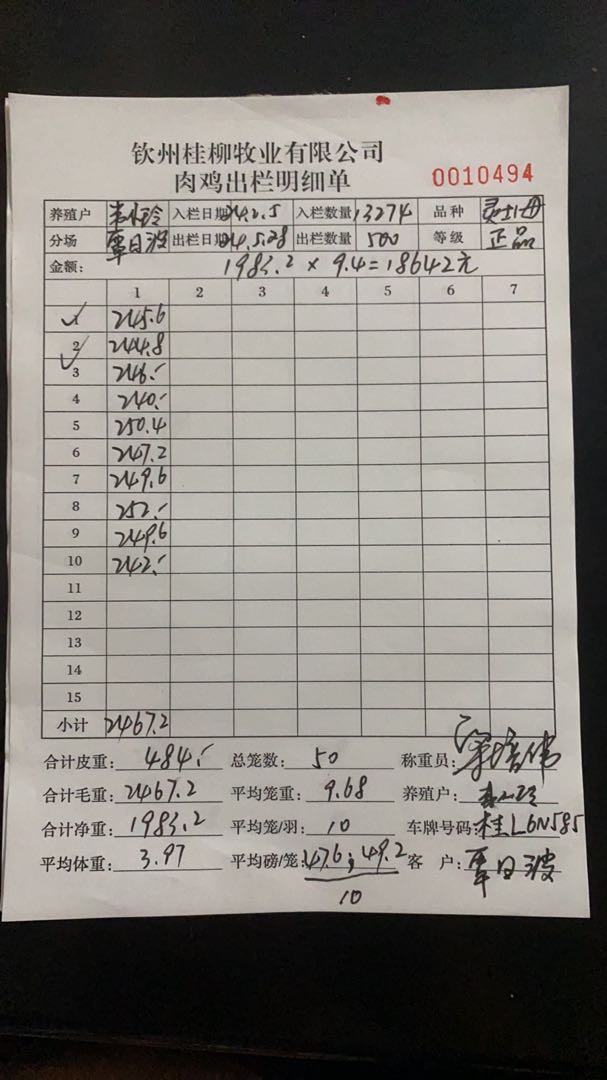 钦州桂柳牧业有限公司
肉鸡出栏明细单
0010494
养殖户 入栏日期 24.2.5 入栏数量 13274 品种
分场 覃日波 出栏日期 24.5.28 出栏数量 500 等级 正品
金额: 1983.2 × 9.4=18642元
1 2 3 4 5 6 7
1 245.6
2 244.8
3 246.-
4 240.-
5 250.4
6 247.2
7 249.6
8 252.-
9 249.6
10 242.-
11
12
13
14
15
小计 2467.2
合计皮重: 484.- 总笼数: 50 称重员:
合计毛重: 2467.2 平均笼重: 9.68 养殖户:
合计净重: 1983.2 平均笼/羽: 10 车牌号码: 桂L6N585
平均体重: 3.97 平均磅/笼: 47.6; 49.2 客 户: 覃日波
10